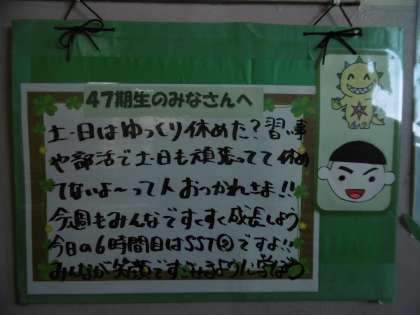 47期生のみなさんへ
土・日はゆっくり休めた？習い事
や部活で土・日も頑張ってて休め
てないよ〜って人おつかれさま!!
今週もみんなですくすく成長しよう
今日の6時間目はSST②ですよ!!
みんなが笑顔ですごせるように学ぼう